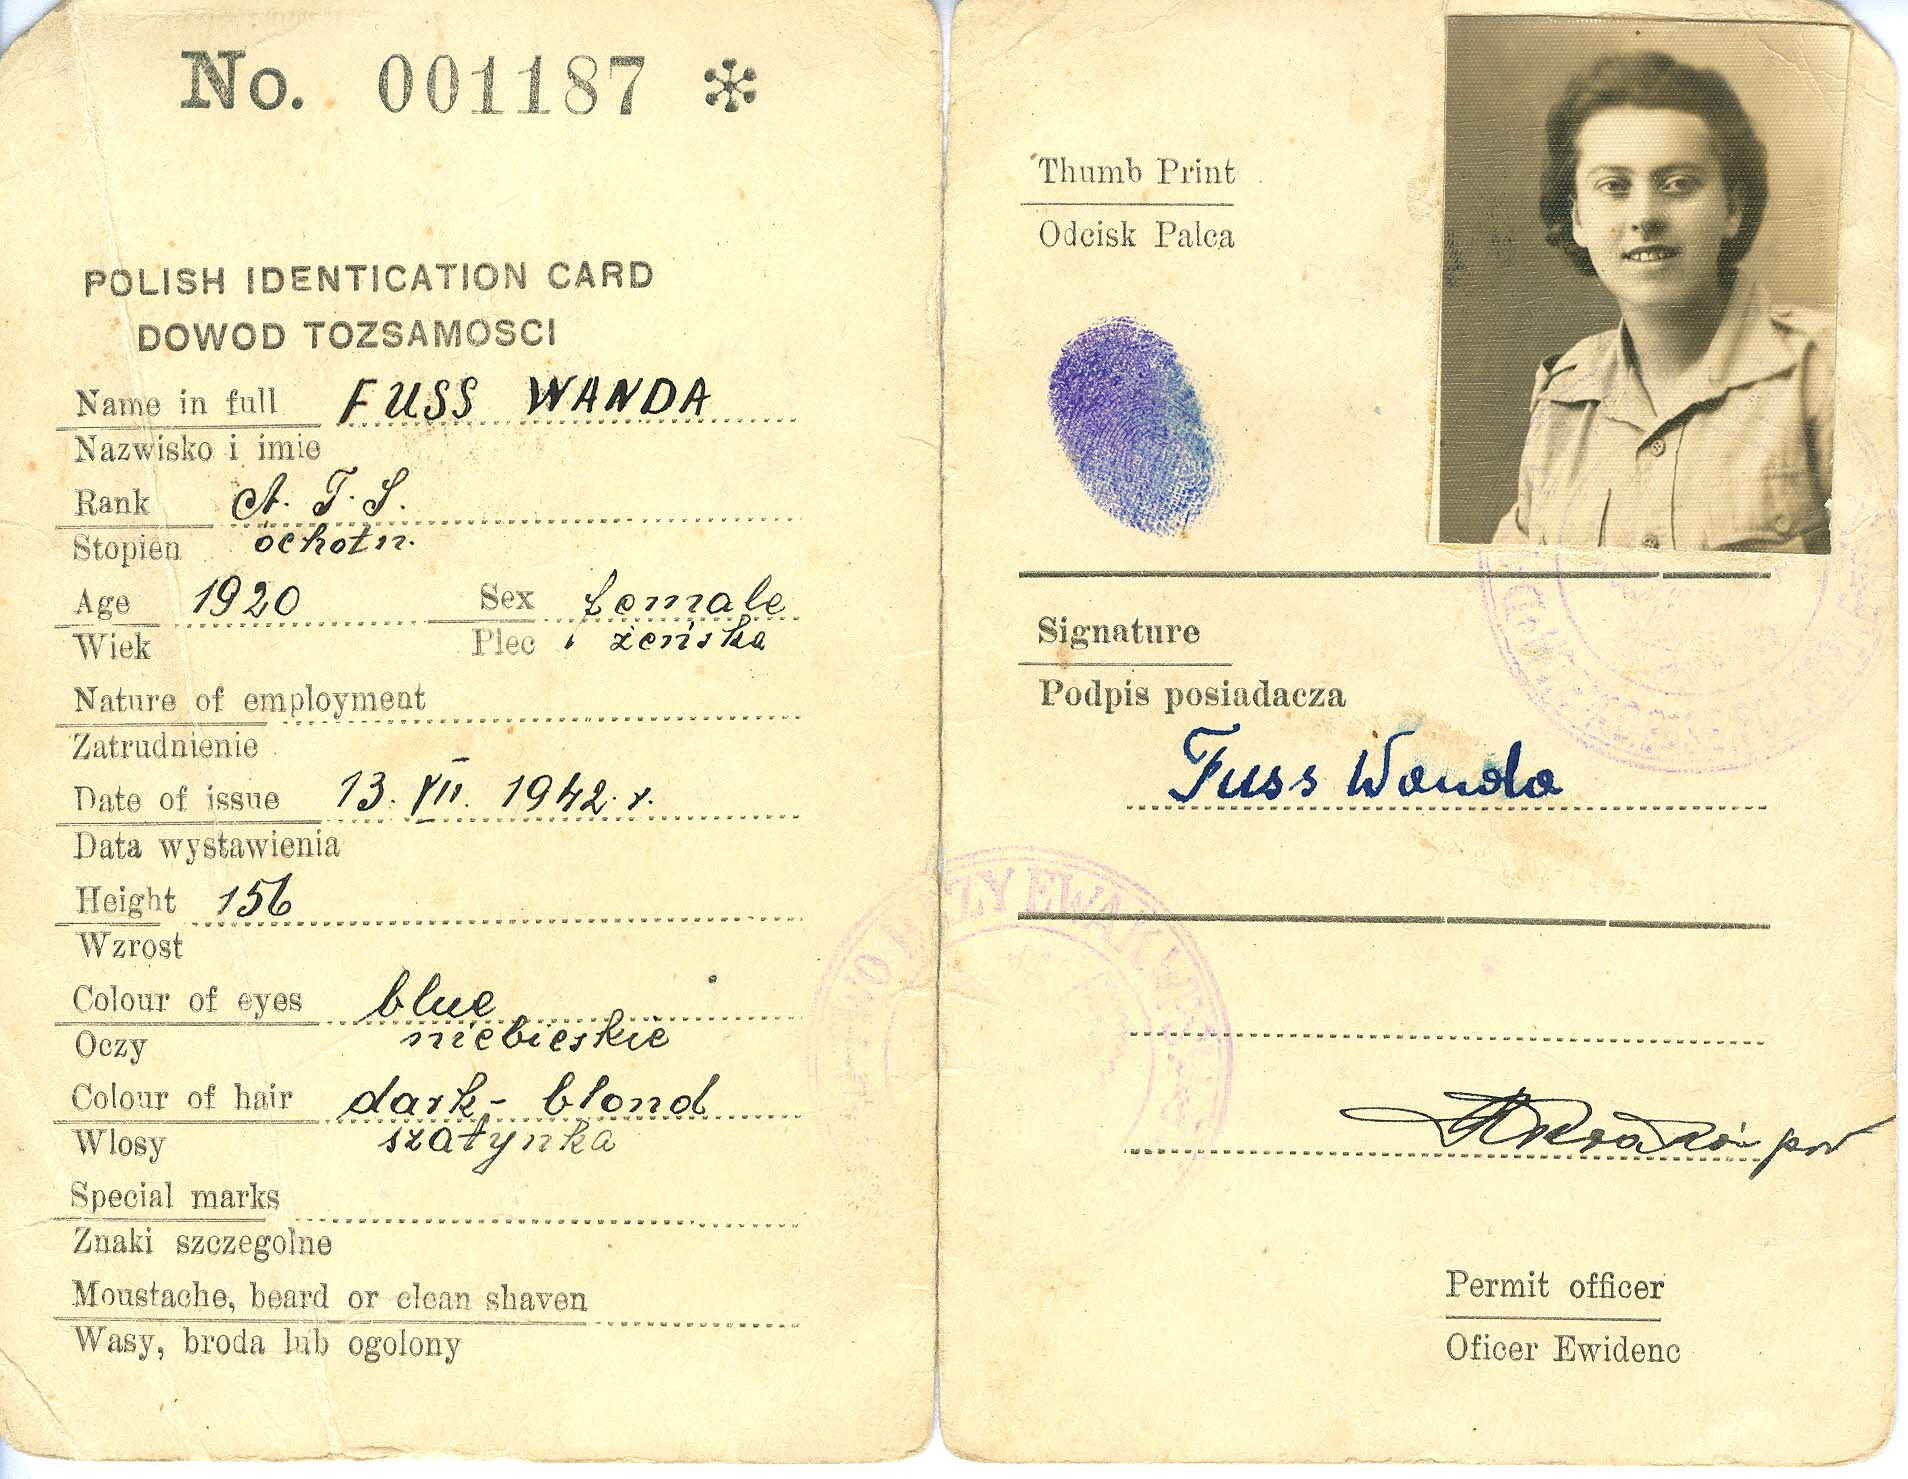 No. 001187 *
POLISH IDENTICATION CARD
DOWOD TOZSAMOSCI
Name in full FUSS WANDA
Nazwisko i imie
Rank A.T.S.
Stopien ochotn.
Age 1920 Sex female
Wiek Plec żeńska
Nature of employment
Zatrudnienie
Date of issue 13. VII. 1942. r.
Data wystawienia
Height 156
Wzrost
Colour of eyes blue
Oczy niebieskie
Colour of hair dark-blond
Wlosy szatynka
Special marks
Znaki szczegolne
Moustache, beard or clean shaven
Wasy, broda lub ogolony
Thumb Print
Odcisk Palca
Signature
Podpis posiadacza
Fuss Wanda
EWAK
por
Permit officer
Oficer Ewidenc